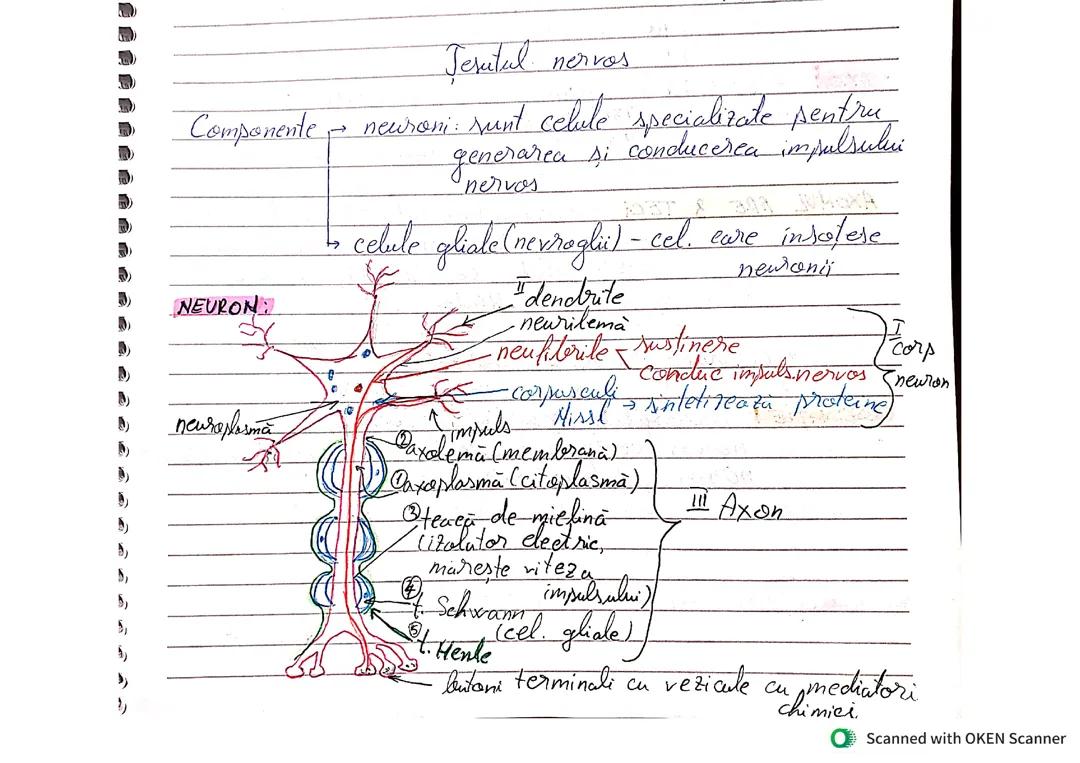 Țesutul nervos
Componente → neuroni: sunt celule specializate pentru
generarea și conducerea impulsului
nervos
→ celule gliale (nevroglii) - cel. care însoțesc
neuronii
NEURON:
II dendrite
neurilemă
neufibrile - susținere
conduc impuls. nervos
I corp
neuron
corpusculi
Nissl → sintetizează proteine
neuroplasmă
impuls
② axolemă (membrană)
① axoplasmă (citoplasmă)
III Axon
③ teacă de mielină
(izolator electric,
mărește viteza
impulsului)
④ t. Schwann
(cel. gliale)
⑤ t. Henle
butoni terminali cu vezicule cu mediatori
chimici.
Scanned with OKEN Scanner